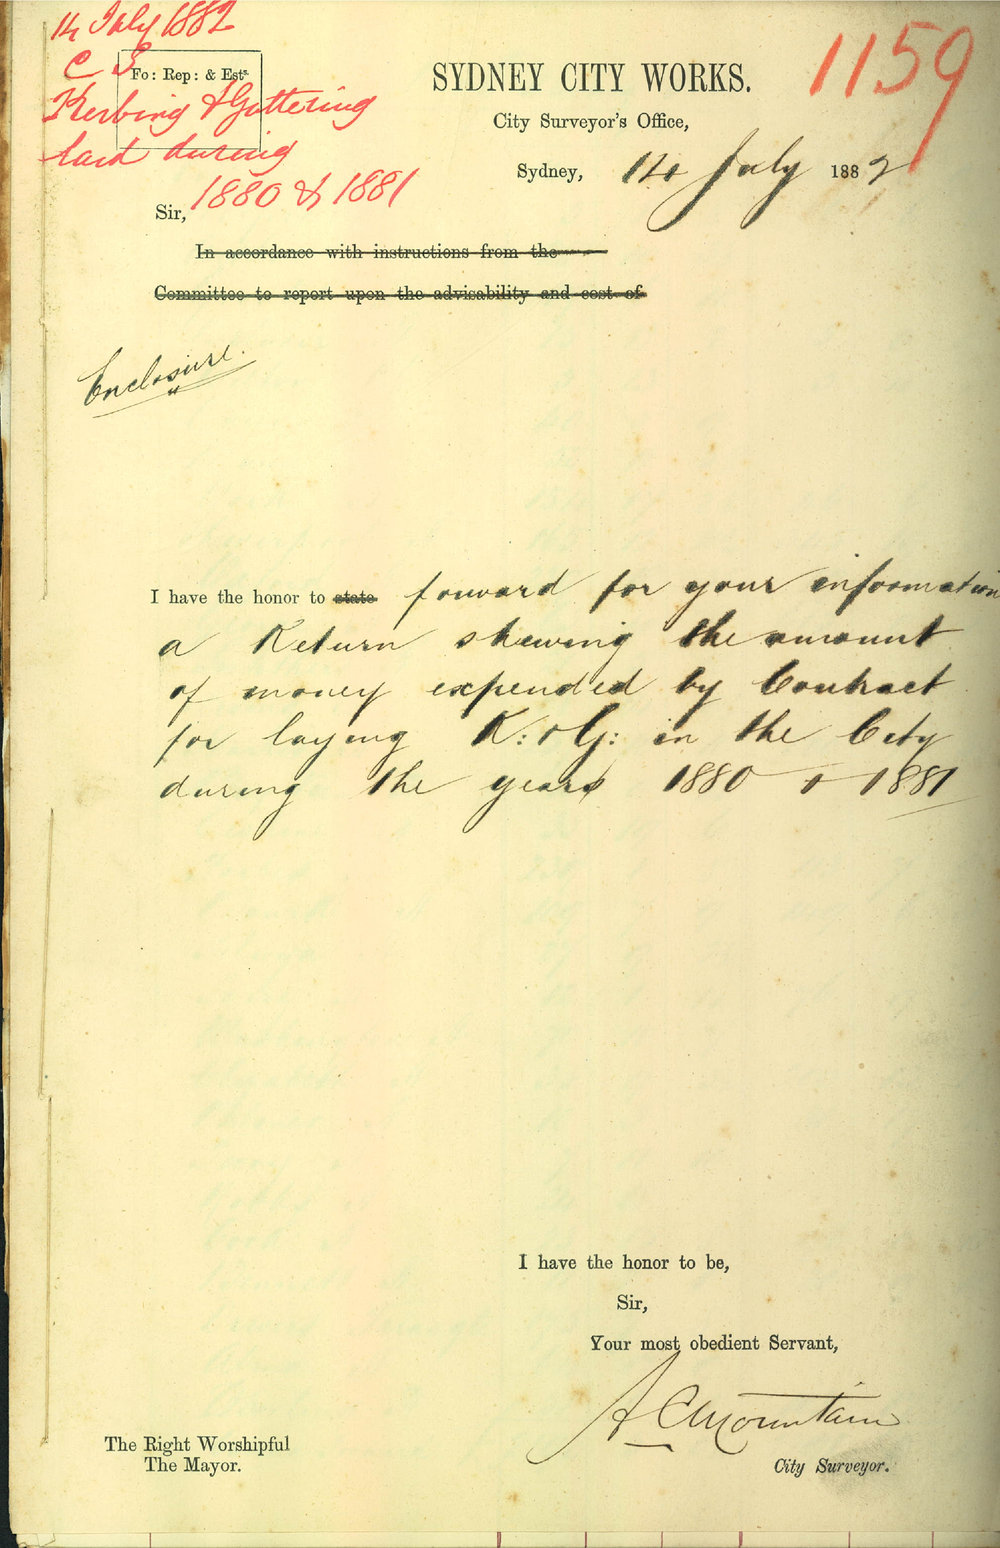 14 July 1882
C S
Fo: Rep: & Ests.
Kerbing & Guttering
laid during
1880 & 1881
1159
SYDNEY CITY WORKS.
City Surveyor's Office,
Sydney, 14 July 1882
Sir,
In accordance with instructions from the
Committee to report upon the advisability and cost of
Enclosure.
I have the honor to state forward for your information
a Return shewing the amount
of money expended by Contract
for laying K: & G: in the City
during the years 1880 & 1881
I have the honor to be,
Sir,
Your most obedient Servant,
A C Mountain
City Surveyor.
The Right Worshipful
The Mayor.